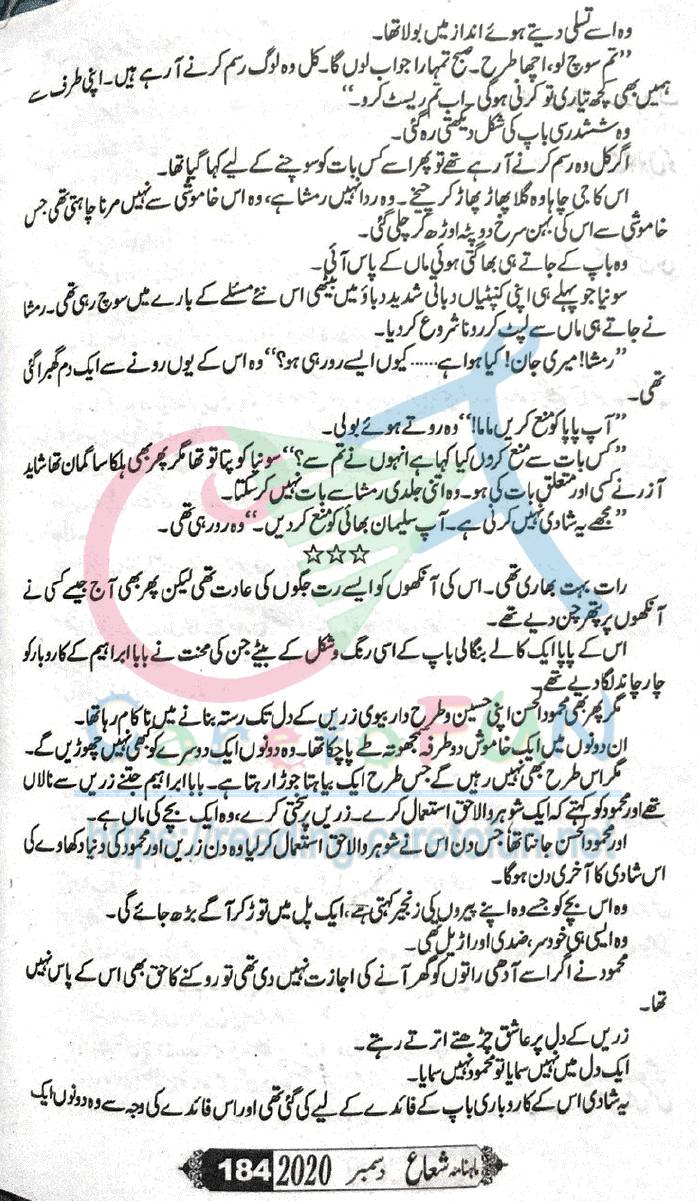 وہ اسے تسلی دیتے ہوئے انداز میں بولا تھا۔
”تم سوچ لو، اچھا طرح۔ صبح تمہارا جواب لوں گا۔ کل وہ لوگ رسم کرنے آ رہے ہیں۔ اپنی طرف سے
ہمیں بھی کچھ تیاری تو کرنی ہو گی۔ اب تم ریسٹ کرو۔“
وہ ششدر سی باپ کی شکل دیکھتی رہ گئی۔
اگر کل وہ رسم کرنے آ رہے تھے تو پھر اسے کس بات کو سوچنے کے لیے کہا گیا تھا۔
اس کا جی چاہا وہ گلا پھاڑ پھاڑ کر چیخے۔ وہ ردا نہیں رمشا ہے، وہ اس خاموشی سے نہیں مرنا چاہتی تھی جس
خاموشی سے اس کی بہن سرخ دوپٹہ اوڑھ کر چلی گئی۔
وہ باپ کے جاتے ہی بھاگتی ہوئی ماں کے پاس آئی۔
سونیا جو پہلے ہی اپنی کنپٹیاں دباتی شدید دباؤ میں بیٹھی اس نئے مسئلے کے بارے میں سوچ رہی تھی۔ رمشا
نے جاتے ہی ماں سے لپٹ کر رونا شروع کر دیا۔
”رمشا! میری جان! کیا ہوا ہے...... کیوں ایسے رو رہی ہو؟“ وہ اس کے یوں رونے سے ایک دم گھبرا گئی
تھی۔
”آپ پاپا کو منع کریں ماما!“ وہ روتے ہوئے بولی۔
”کس بات سے منع کروں کیا کہا ہے انہوں نے تم سے؟“ سونیا کو پتا تو تھا مگر پھر بھی ہلکا سا گمان تھا شاید
آزر نے کسی اور متعلق بات کی ہو۔ وہ اتنی جلدی رمشا سے بات نہیں کر سکتا۔
”مجھے یہ شادی نہیں کرنی ہے۔ آپ سلیمان بھائی کو منع کر دیں۔“ وہ رو رہی تھی۔
☆☆☆
رات بہت بھاری تھی۔ اس کی آنکھوں کو ایسے رت جگوں کی عادت تھی لیکن پھر بھی آج جیسے کسی نے
آنکھوں پر پتھر چن دیے تھے۔
اس کے پاپا ایک کالے بنگالی باپ کے اسی رنگ و شکل کے بیٹے جن کی محنت نے بابا ابراہیم کے کاروبار کو
چار چاند لگا دیے تھے۔
مگر پھر بھی محمود الحسن اپنی حسین و طرح دار بیوی زریں کے دل تک رستہ بنانے میں ناکام رہا تھا۔
ان دونوں میں ایک خاموش دو طرفہ سمجھوتہ طے پا چکا تھا۔ وہ دونوں ایک دوسرے کو بھی نہیں چھوڑیں گے۔
مگر اس طرح بھی نہیں رہیں گے جس طرح ایک بیاہتا جوڑا رہتا ہے۔ بابا ابراہیم جتنے زریں سے نالاں
تھے اور محمود کو کہتے کہ ایک شوہر والا حق استعمال کرے۔ زریں پر سختی کرے، وہ ایک بچے کی ماں ہے۔
اور محمود الحسن جانتا تھا جس دن اس نے شوہر والا حق استعمال کر لیا وہ دن زریں اور محمود کی دنیا دکھاوے کی
اس شادی کا آخری دن ہو گا۔
وہ اس بچے کو جسے وہ اپنے پیروں کی زنجیر کہتی ہے، ایک پل میں توڑ کر آگے بڑھ جائے گی۔
وہ ایسی ہی خود سر، ضدی اور اڑیل تھی۔
محمود نے اگر اسے آدھی راتوں کو گھر آنے کی اجازت نہیں دی تھی تو روکنے کا حق بھی اس کے پاس نہیں
تھا۔
زریں کے دل پر عاشق چڑھتے اترتے رہتے۔
ایک دل میں نہیں سمایا تو محمود نہیں سمایا۔
یہ شادی اس کے کاروباری باپ کے فائدے کے لیے کی گئی تھی اور اس فائدے کی وجہ سے وہ دونوں ایک
ماہنامہ شعاع دسمبر 2020 184
CaretoFUN
https://reading.caretofun.net